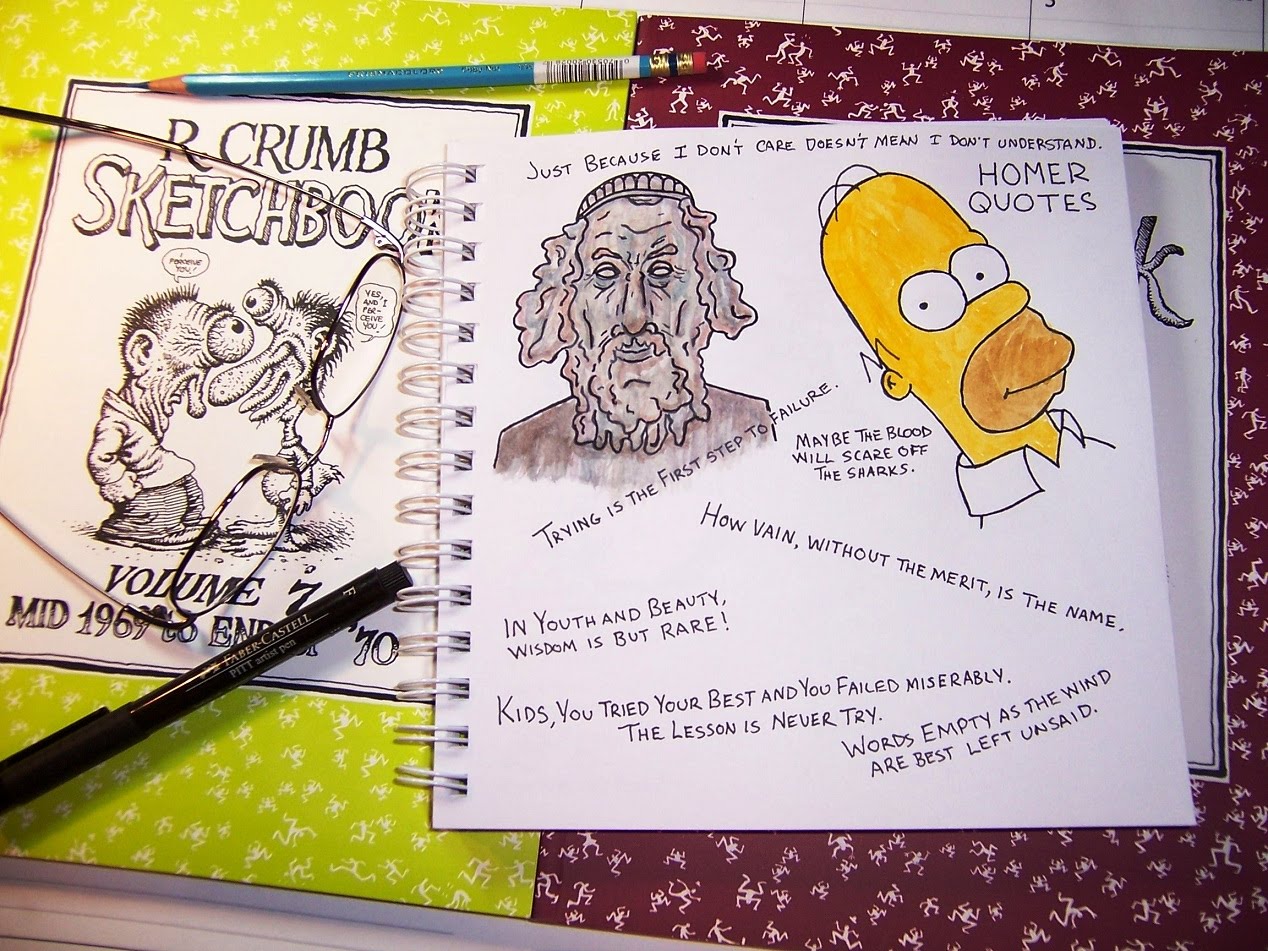 5
PRISMACOLOR
R. CRUMB
SKETCHBOO
I PERCEIVE
YOU!
YES,
AND I
PER-
CEIVE
YOU!
VOLUME 7
MID 1969 to END OF '70
FABER-CASTELL
PITT artist pen
F
JUST BECAUSE I DON'T CARE DOESN'T MEAN I DON'T UNDERSTAND.
HOMER
QUOTES
TRYING IS THE FIRST STEP TO FAILURE.
MAYBE THE BLOOD
WILL SCARE OFF
THE SHARKS.
HOW VAIN, WITHOUT THE MERIT, IS THE NAME.
IN YOUTH AND BEAUTY,
WISDOM IS BUT RARE!
KIDS, YOU TRIED YOUR BEST AND YOU FAILED MISERABLY.
THE LESSON IS NEVER TRY.
WORDS EMPTY AS THE WIND
ARE BEST LEFT UNSAID.
k